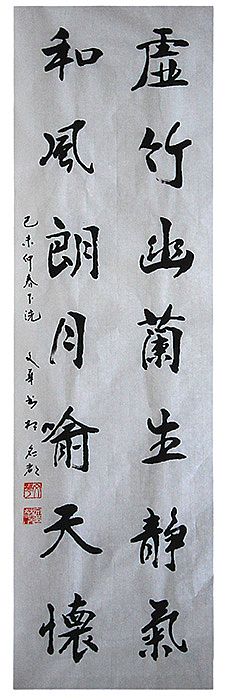 虛竹幽蘭生靜氣
和風朗月喻天懷
己未仲春下浣
文華书於